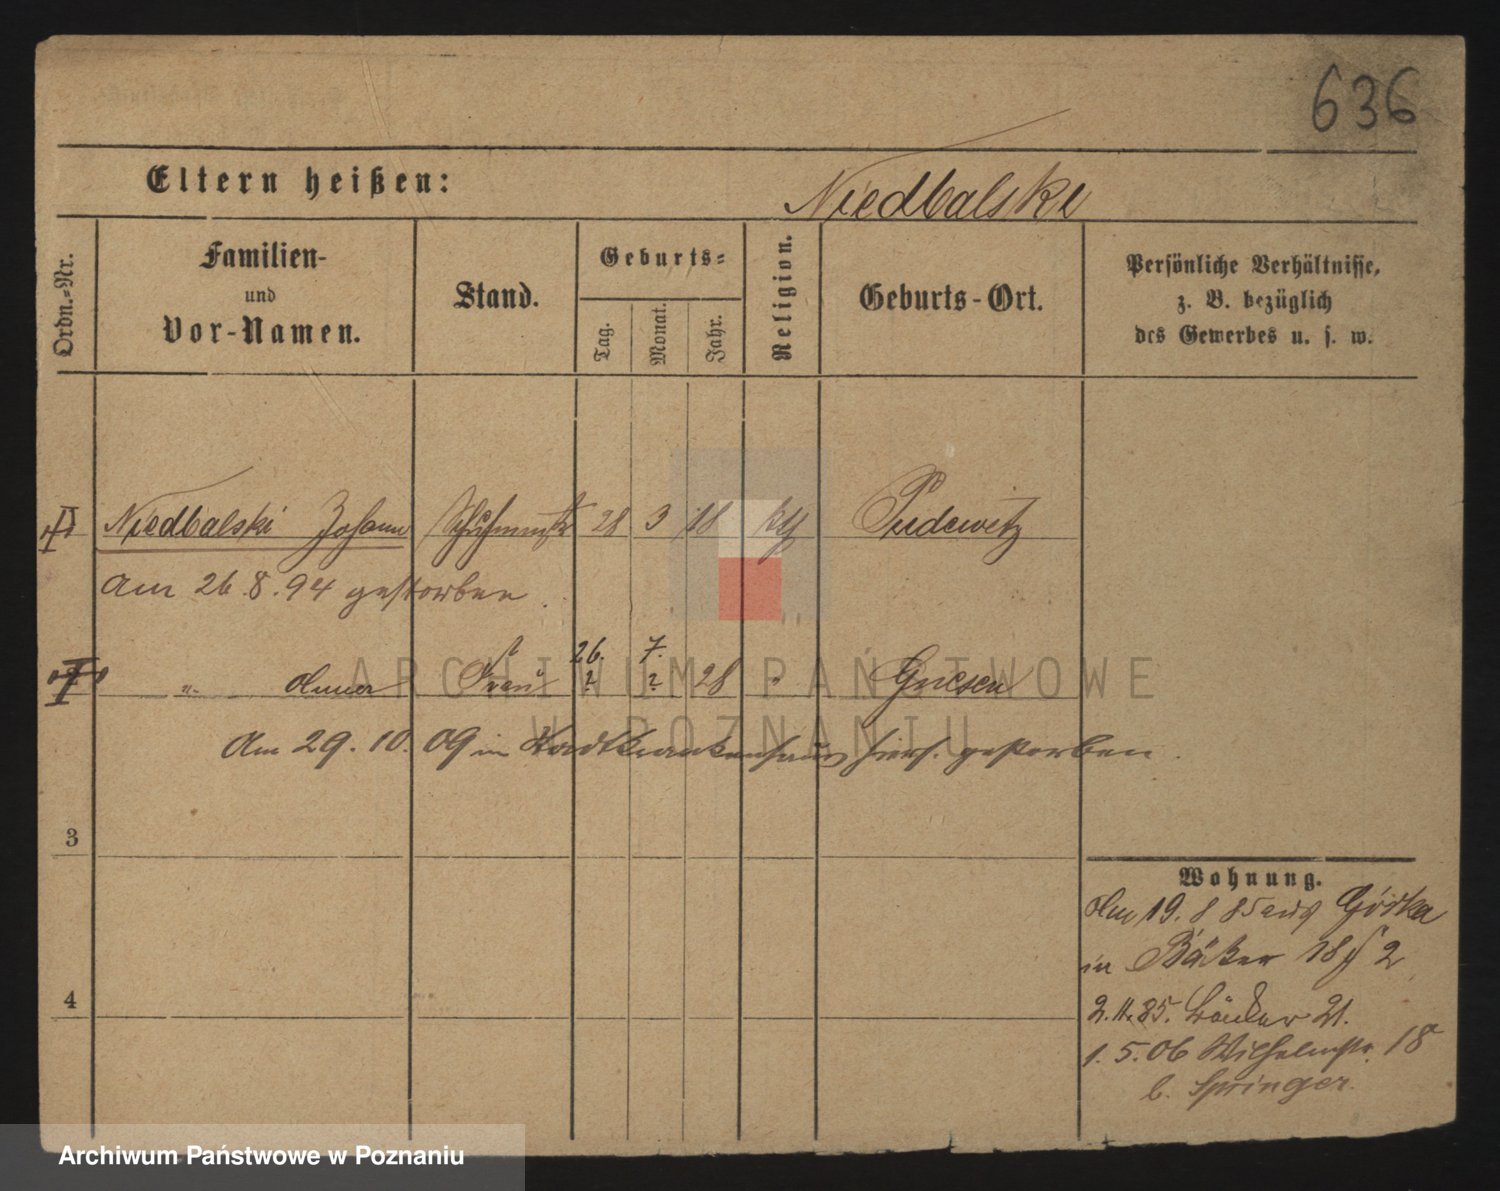 636
Eltern heißen:
Niedbalski
Ordn.-Nr.
Familien-
und
Vor-Namen.
Stand.
Geburts-
Tag.
Monat.
Jahr.
Religion.
Geburts-Ort.
Persönliche Verhältnisse,
z. B. bezüglich
des Gewerbes u. s. w.
Niedbalski Johann 28 3 18 kth Pudewitz
am 26.8.94 gestorben.
26. 7.
" Anna Frau ? ? 28 " Gnesen
Am 29.10.09 im Stadtkrankenhaus hiers. gestorben.
3
4
Wohnung.
Am 19.8 85 aus Górka
in Bäcker 18 2
2.11.85. Bäcker 21.
1.5.06 Wilhelmstr. 18
b. Springer.
ARCHIWUM PAŃSTWOWE
W POZNANIU
Archiwum Państwowe w Poznaniu